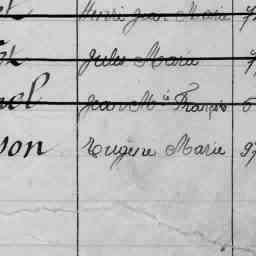 et Henri Jean Marie 7
Jules Marie 7
nel Jean Mie François 6
son Eugène Marie 97